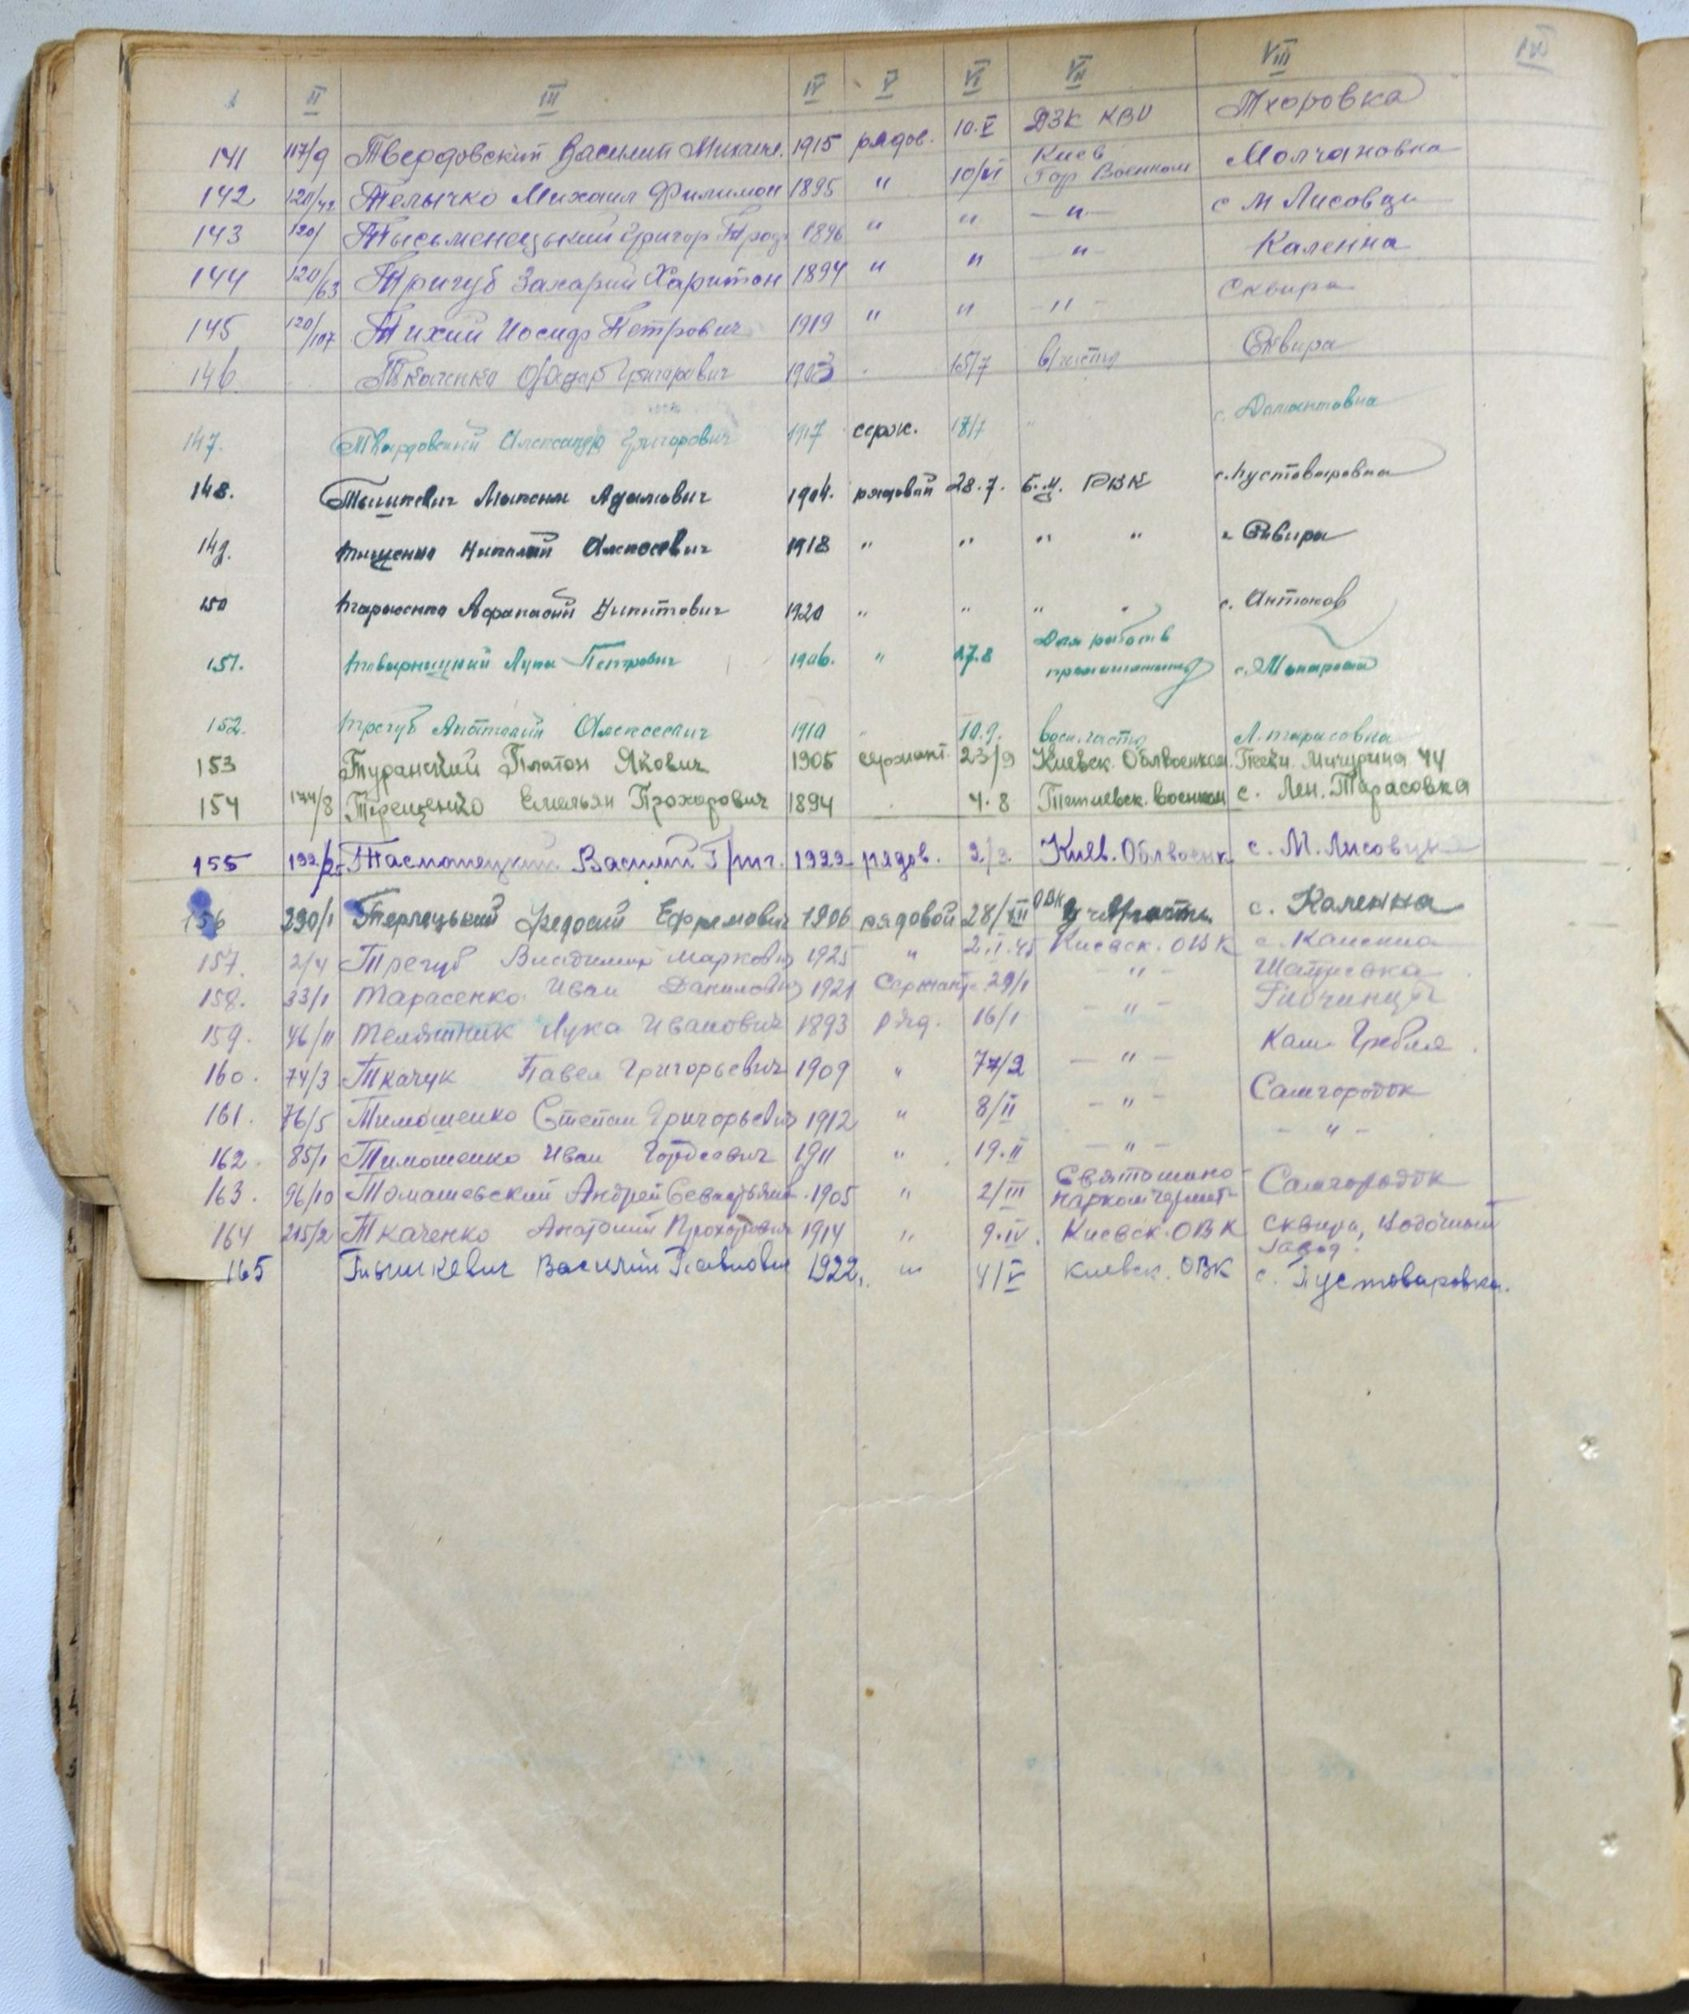 I II III IV V VI VII VIII IX
141 117/9 Твердовский Василий Михайл. 1915 рядов. 10.V ДЗК КВО Тхоровка
142 120/42 Телычко Михаил Филимон 1895 " 10/VI Киев Гор Военком Молчановка
143 120/ Тысьменецький Григор Проф 1896 " " — " — с М Лисовци
144 120/63 Тригуб Захарий Харитон 1894 " " — " — Каленна
145 120/107 Тихий Иосиф Петрович 1919 " " — " — Сквира
146 Ткаченко Григорович 1903 15/7 в/часть Сквира
147. Твардовский Александр Григорович 1917 серж. 18/7 " с. Домантовка
148. Тышкевич Максим Адамович 1904. рядовой 28.7. Б.Ц. РВК с. Пустоваровка
149. Тищенко Николай Алексеевич 1918 " " " " " Сквира
150 Тарасенко Афанасий Никитович 1920 " " " " с. Антонов
151. Товарницкий Лука Петрович 1906. " 17.8 Для работ в промышленность с.
152. Трегуб Анатолий Алексеевич 1910 " 10.9. воен. часть Л. Тарасовка
153 Туранский Платон Якович 1905 сержант. 23/9 Киевск. Облвоенком Мичурина 44
154 174/8 Терещенко Емельян Прохорович 1894 4.8 Тетиевск. военком с. Лен. Тарасовка
155 192/2 Василий Григ. 1922 рядов. 2/3. Киев. Облвоенк. с. М. Лисовци
156 290/1 Терлецький Федосий Ефремович 1906 рядовой 28/VIII ОВК с. Каленна
157. 2/4 Трегуб Владимир Маркович 1925 " 2.I.45 Киевск. ОВК с. Каленна
158. 33/1 Тарасенко Иван Данилович 1921 Сержант 29/1 — " — Шапиевка
159. 46/11 Телятник Лука Иванович 1893 ряд. 16/1 — " —
160. 74/3 Ткачук Павел Григорьевич 1909 " 77/2 — " — Кам. Гребля
161. 76/5 Тимошенко Степан Григорьевич 1912 " 8/II — " — Самгородок
162. 85/1 Тимошенко Иван Гордеевич 1911 " 19.II — " — — " —
163. 96/10 Томашевский Андрей Севастьянов. 1905 " 2/III Святошино Самгородок
164 215/2 Ткаченко Анатолий Прохорович 1914 " 9.IV. Киевск. ОВК Сквира, завод.
165 Тышкевич Василий Павлович 1922. " 4/V Киевск. ОВК с. Пустоваровка.